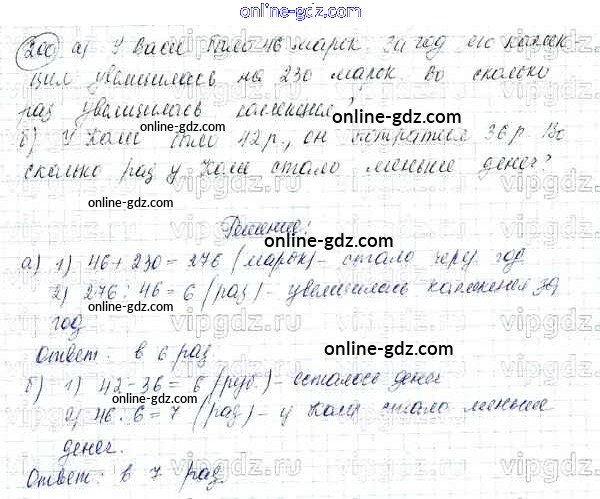 online-gdz.com
200 а) У Васи было 46 марок. За год его коллек-
ция увеличилась на 230 марок. Во сколько
раз увеличилась коллекция?
online-gdz.com
online-gdz.com
б) У Коли было 42 р., он потратил 36 р. Во
сколько раз у Коли стало меньше денег?
online-gdz.com
Решение:
online-gdz.com
а) 1) 46 + 230 = 276 (марок) - стало через год
2) 276 : 46 = 6 (раз) - увеличилась коллекция за
год
Ответ: в 6 раз.
online-gdz.com
б) 1) 42 - 36 = 6 (руб.) - осталось денег
online-gdz.com
2) 46 : 6 = 7 (раз) - у Коли стало меньше
денег.
Ответ: в 7 раз.
online-gdz.com
vipgdz.ru